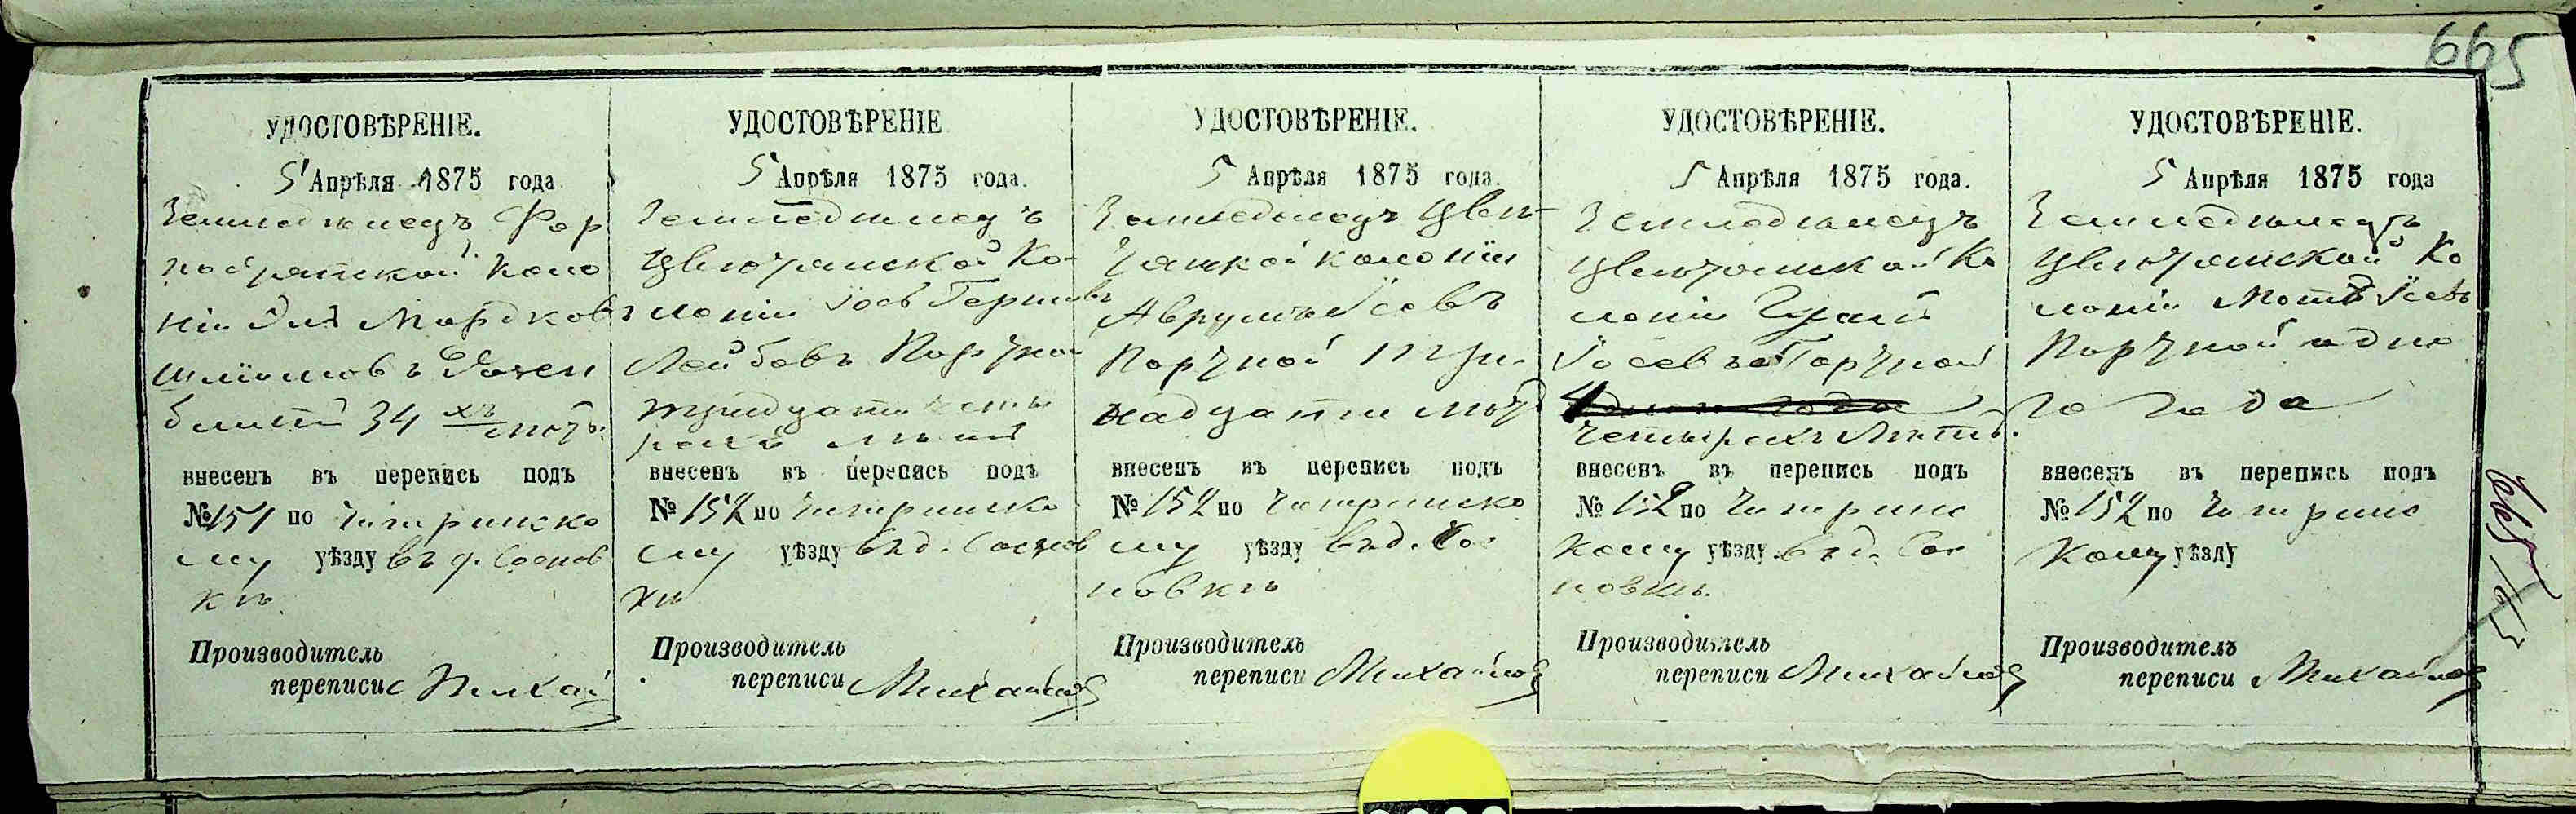 665
УДОСТОВѢРЕНІЕ.
5 Апрѣля 1875 года
Земледѣлецъ
коло
ніи Мордковъ
Шліомовъ
34 хъ лѣтъ
внесенъ въ перепись подъ
№ 151 по Чигринско
му уѣзду въ д. Соснов
кѣ
Производитель
переписи Михай
УДОСТОВѢРЕНІЕ
5 Апрѣля 1875 года.
Земледѣлецъ
Ко
лоніи Іось Гершковъ
Лейбовъ Порчной
тридцати четы
рехъ лѣтъ
внесенъ въ перепись подъ
№ 152 по Чигринско
му уѣзду въ д. Соснов
кѣ
Производитель
переписи Михайлов
УДОСТОВѢРЕНІЕ.
5 Апрѣля 1875 года.
Земледѣлецъ
колоніи
Аврумъ Іосевъ
Порчной три
надцати лѣтъ
внесенъ въ перепись подъ
№ 152 по Чигринско
му уѣзду въ д. Сос
новкѣ
Производитель
переписи Михайлов
УДОСТОВѢРЕНІЕ.
5 Апрѣля 1875 года.
Земледѣлецъ
Ко
лоніи
Іосевъ Порчной
четырехъ лѣтъ.
внесенъ въ перепись подъ
№ 152 по Чигринс
кому уѣзду въ д. Сос
новкѣ.
Производитель
переписи Михайлов
УДОСТОВѢРЕНІЕ.
5 Апрѣля 1875 года
Земледѣлецъ
Ко
лоніи Мотя Іосевъ
Порчной одно
го года
внесенъ въ перепись подъ
№ 152 по Чигринс
кому уѣзду
Производитель
переписи Михайлов